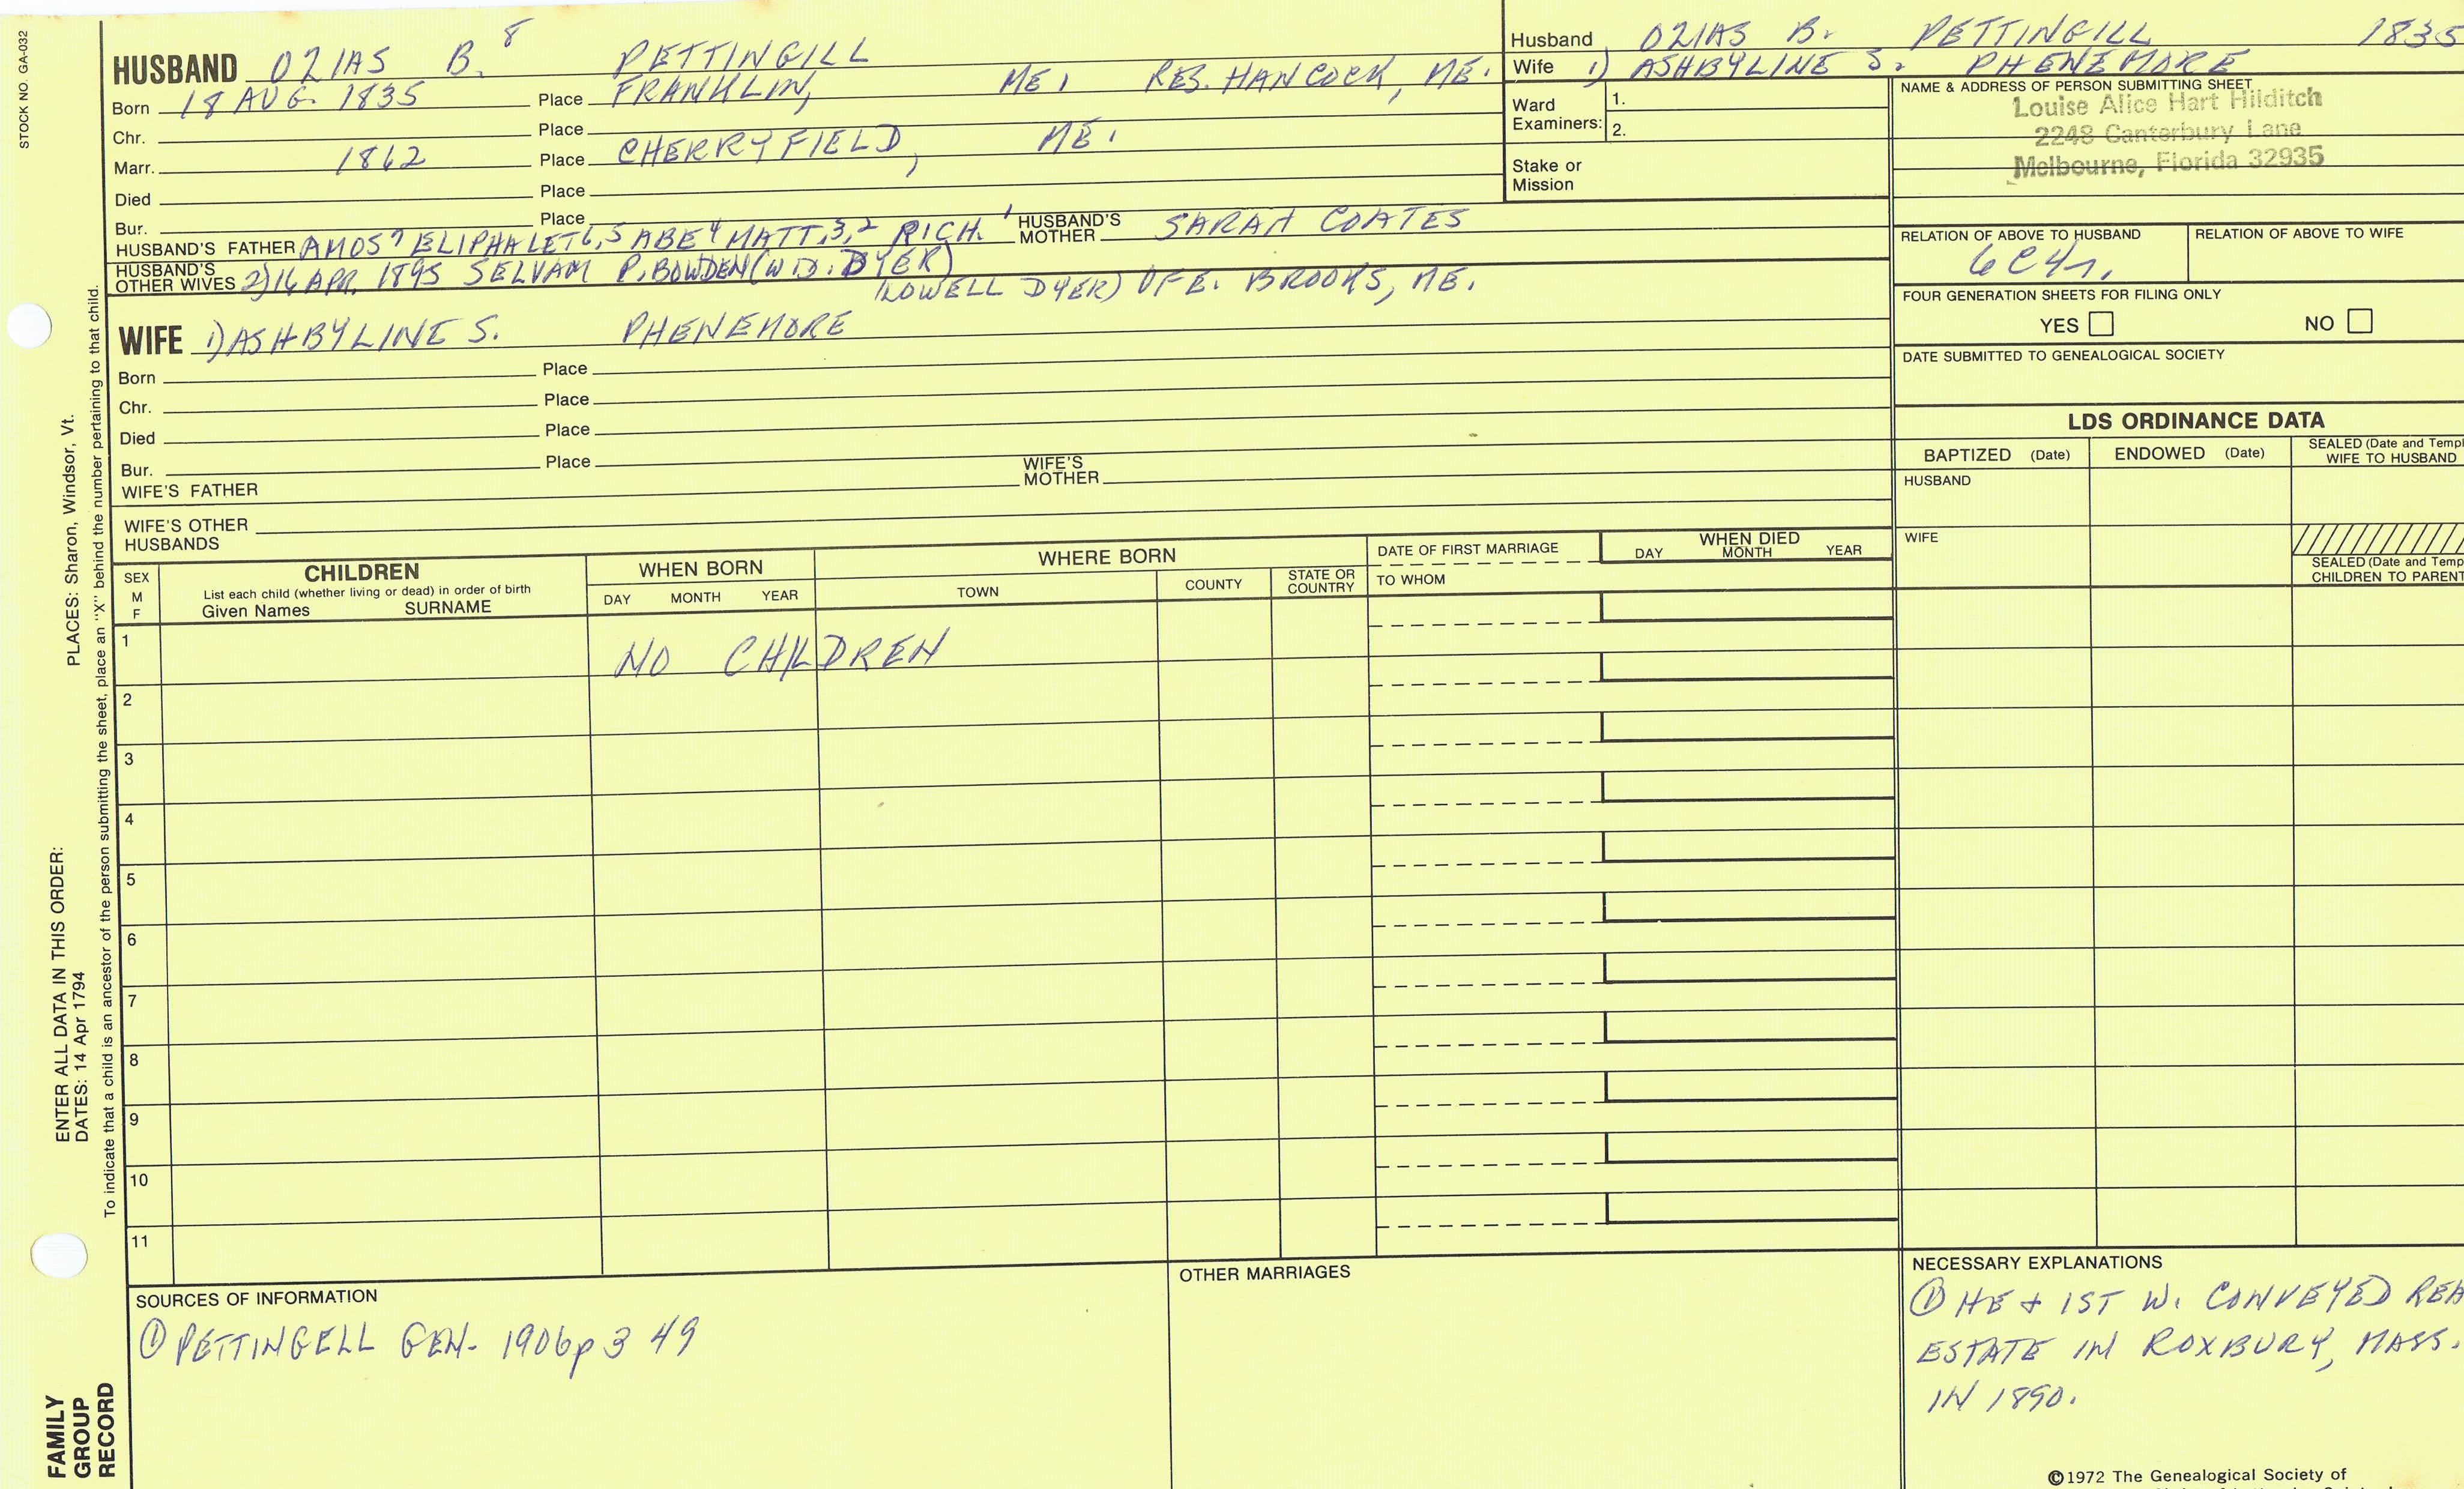 STOCK NO. GA-032
HUSBAND OZIAS B. 8 PETTINGILL
Born 18 AUG. 1835 Place FRANKLIN, ME. RES. HANCOCK, ME.
Chr. Place
Marr. 1862 Place CHERRYFIELD, ME.
Died Place
Bur. Place
HUSBAND'S FATHER AMOS 7 ELIPHALET 6,5 ABE 4 MATT. 3,2 RICH. 1 HUSBAND'S MOTHER SARAH COATES
HUSBAND'S OTHER WIVES 2) 16 APR. 1895 SELVAM P. BOWDEN (WID. DYER)
(LOWELL DYER) OF E. BROOKS, ME.
WIFE 1) ASHBYLINE S. PHENEMORE
Born Place
Chr. Place
Died Place
Bur. Place
WIFE'S FATHER WIFE'S MOTHER
WIFE'S OTHER HUSBANDS
Husband OZIAS B. PETTINGILL 1835
Wife 1) ASHBYLINE S. PHENEMORE
Ward Examiners: 1.
2.
Stake or Mission
NAME & ADDRESS OF PERSON SUBMITTING SHEET
Louise Alice Hart Hilditch
2248 Canterbury Lane
Melbourne, Florida 32935
RELATION OF ABOVE TO HUSBAND RELATION OF ABOVE TO WIFE
6C4r.
FOUR GENERATION SHEETS FOR FILING ONLY
YES NO
DATE SUBMITTED TO GENEALOGICAL SOCIETY
LDS ORDINANCE DATA
BAPTIZED (Date) ENDOWED (Date) SEALED (Date and Templ
WIFE TO HUSBAND
HUSBAND
WIFE
SEALED (Date and Temp
CHILDREN TO PARENT
SEX M F
CHILDREN
List each child (whether living or dead) in order of birth
Given Names SURNAME
WHEN BORN
DAY MONTH YEAR
WHERE BORN
TOWN COUNTY STATE OR COUNTRY
DATE OF FIRST MARRIAGE
TO WHOM
WHEN DIED
DAY MONTH YEAR
1 NO CHILDREN
2
3
4
5
6
7
8
9
10
11
SOURCES OF INFORMATION
① PETTINGELL GEN. 1906 p 349
OTHER MARRIAGES
NECESSARY EXPLANATIONS
① HE & 1ST W. CONVEYED REA
ESTATE IN ROXBURY, MASS.
IN 1890.
©1972 The Genealogical Society of
ENTER ALL DATA IN THIS ORDER:
DATES: 14 Apr 1794
PLACES: Sharon, Windsor, Vt.
To indicate that a child is an ancestor of the person submitting the sheet, place an "X" behind the number pertaining to that child.
FAMILY
GROUP
RECORD